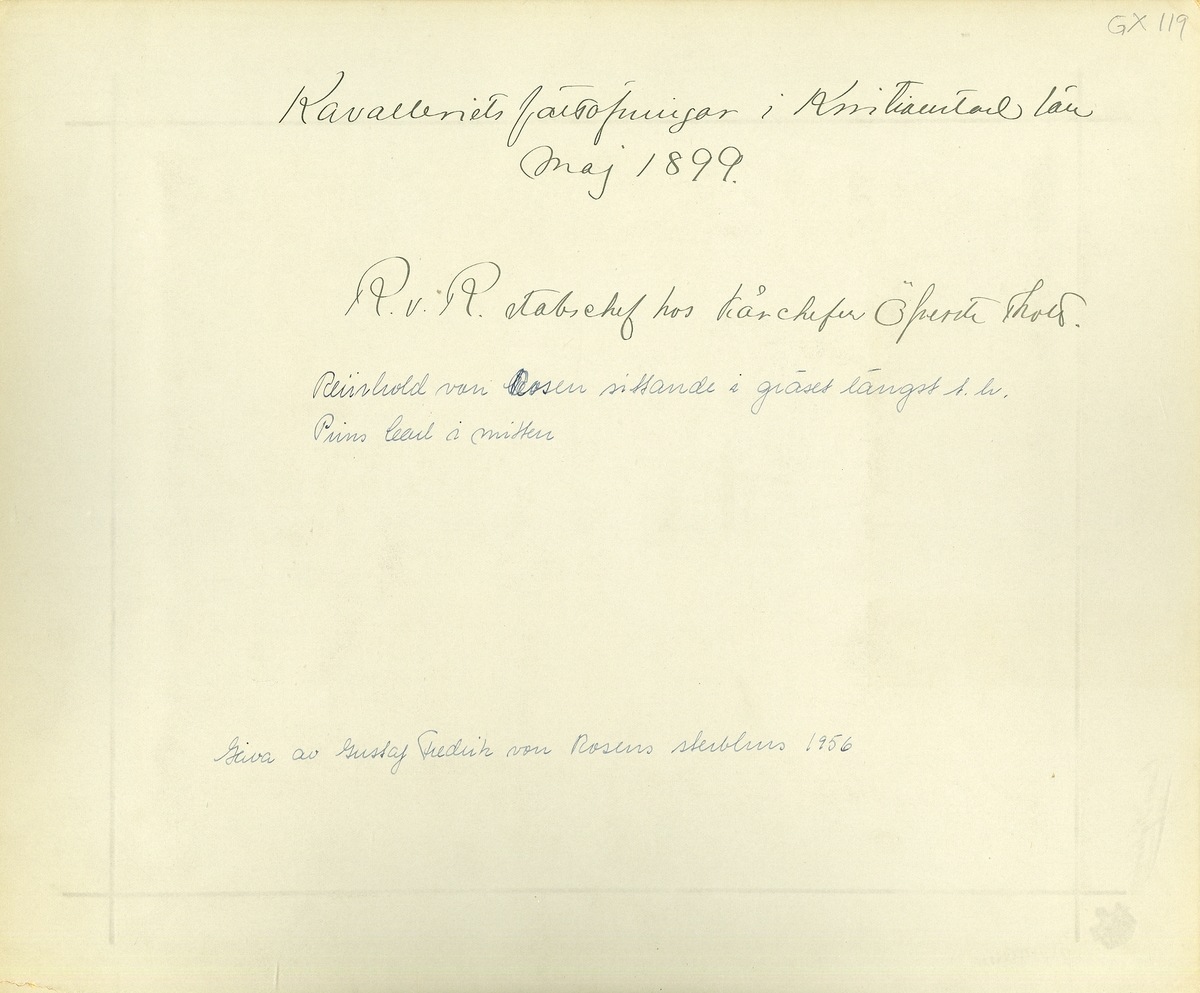 GX 119
Kavalleriets fältöfningar i Kristianstad län
Maj 1899.
R. v. R. stabschef hos kårchefen Öfverste Thott.
Reinhold von Rosen sittande i gräset längst t. h.
Prins Carl i mitten
Gåva av Gustaf Fredrik von Rosens sterbhus 1956